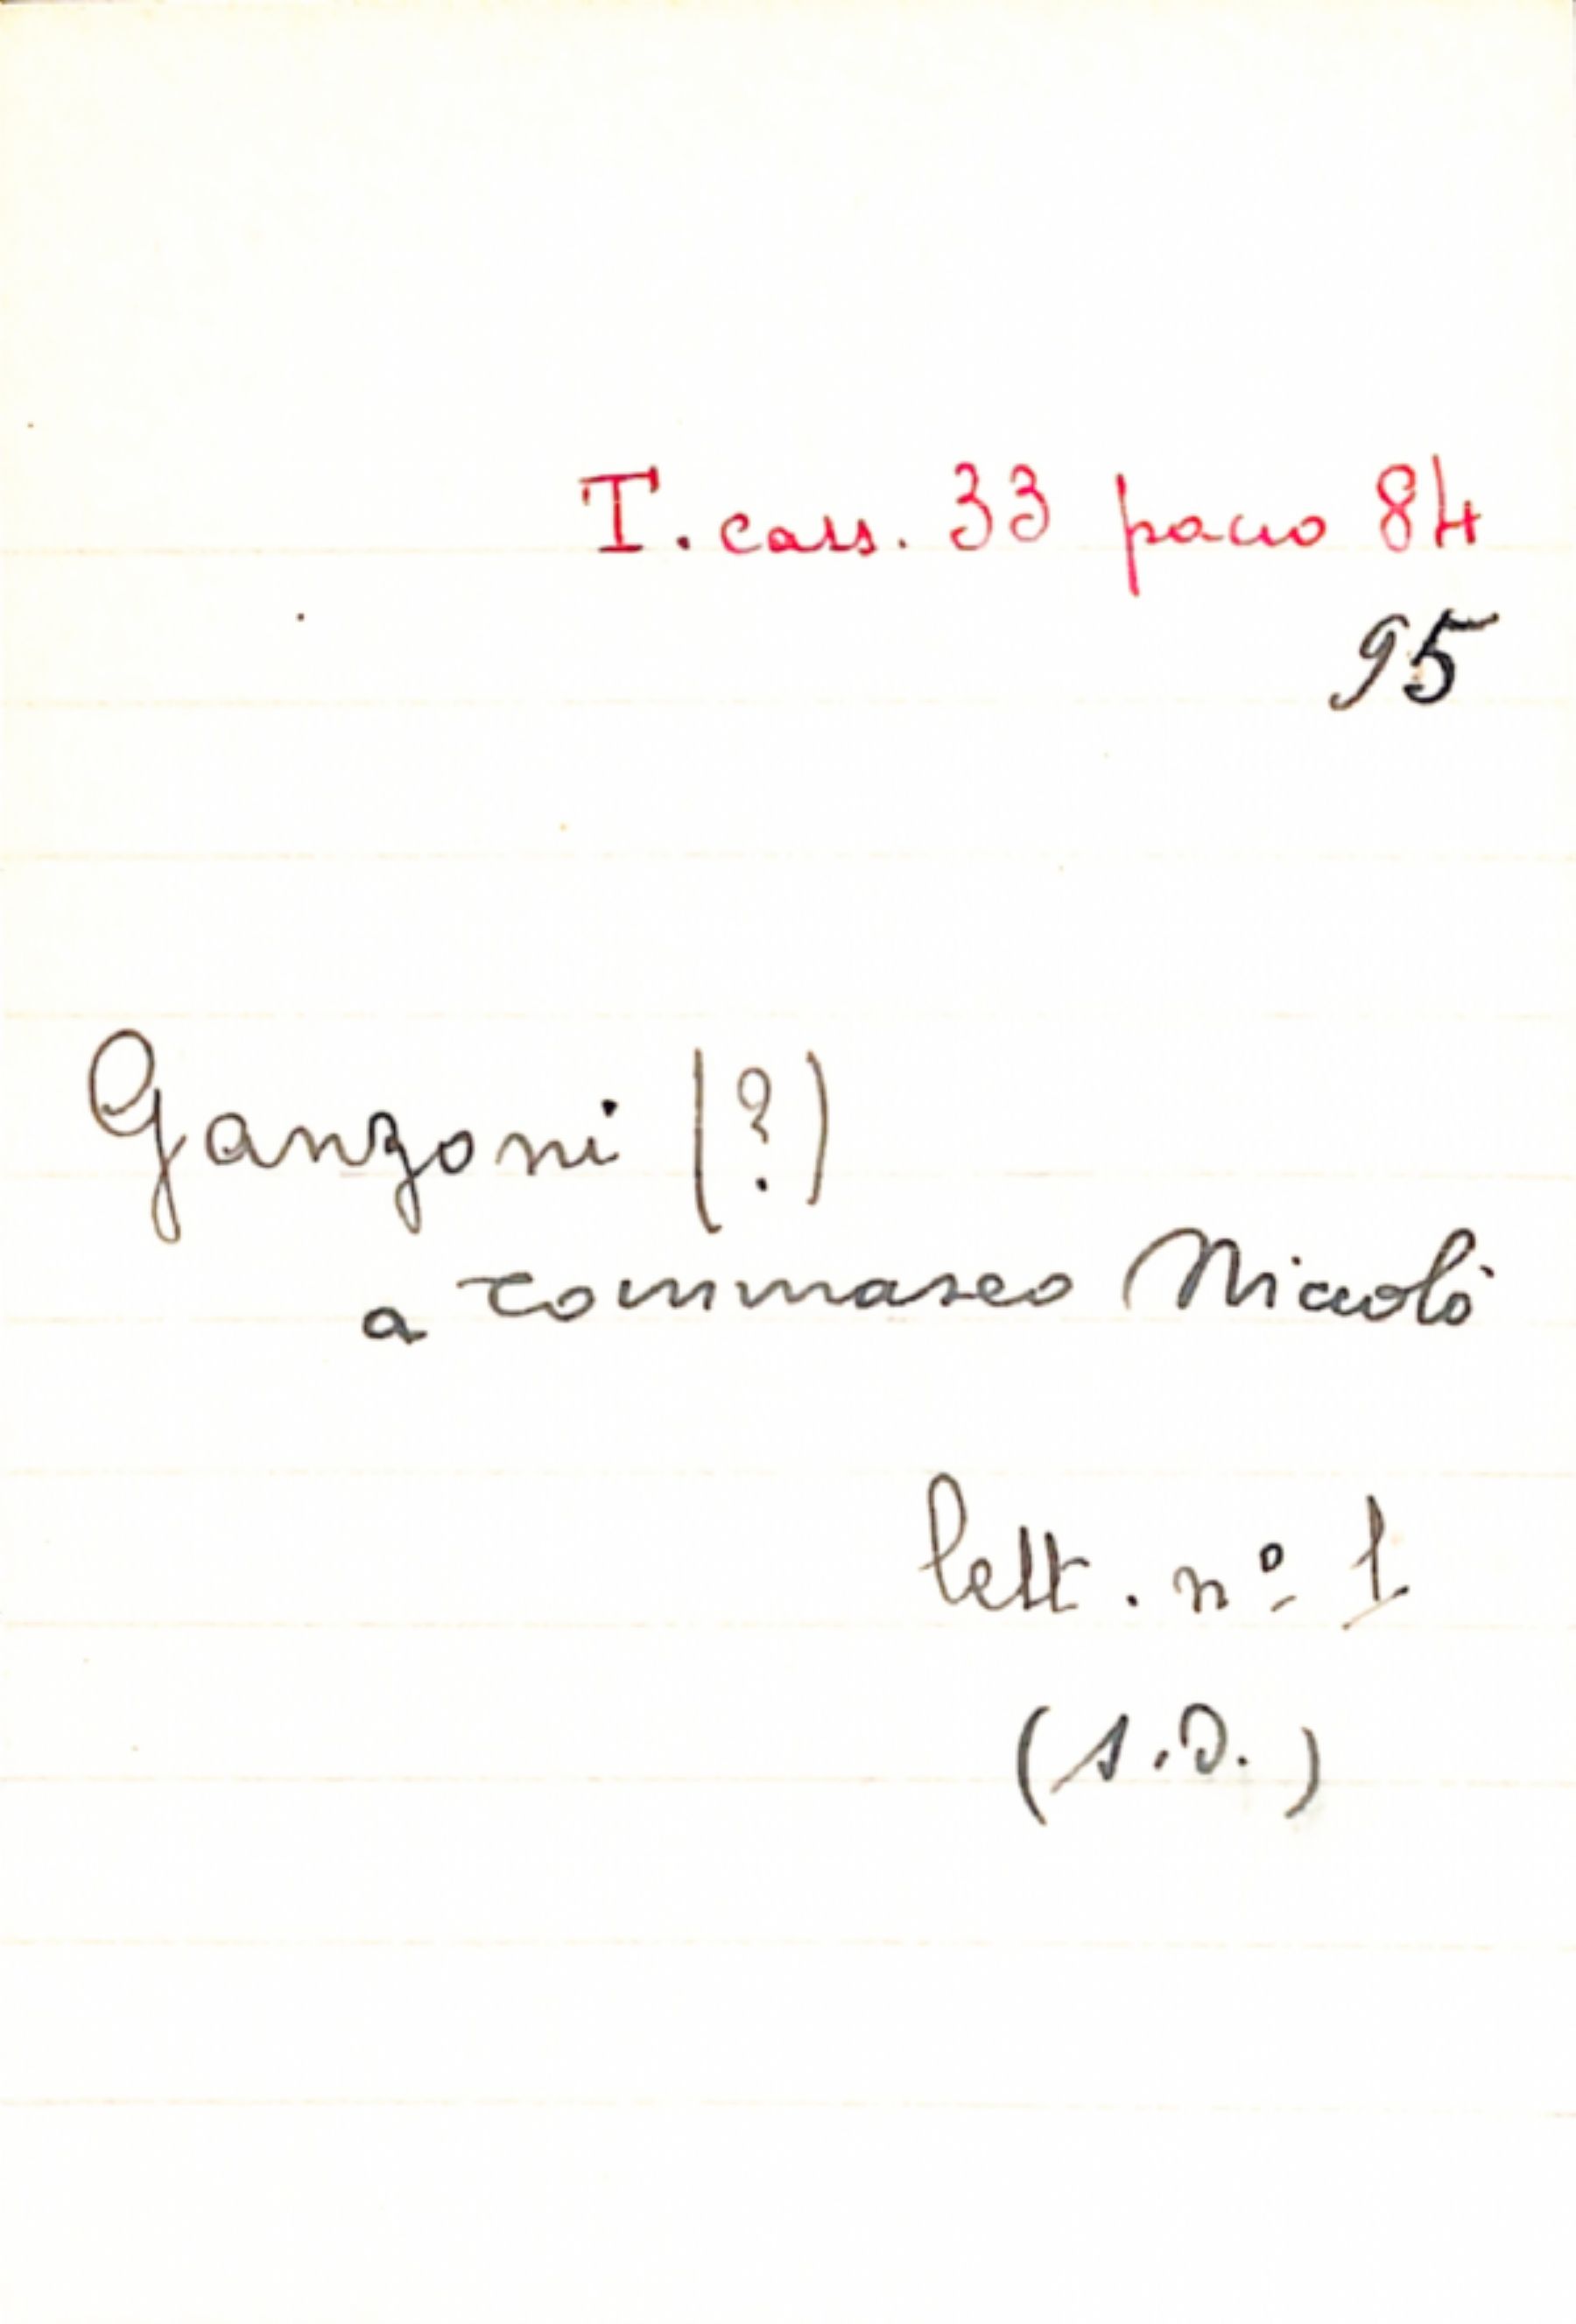 T. cass. 33 pacco 84
95
Ganzoni (?)
a Tommaseo Niccolò
lett. nº 1
(s.D.)